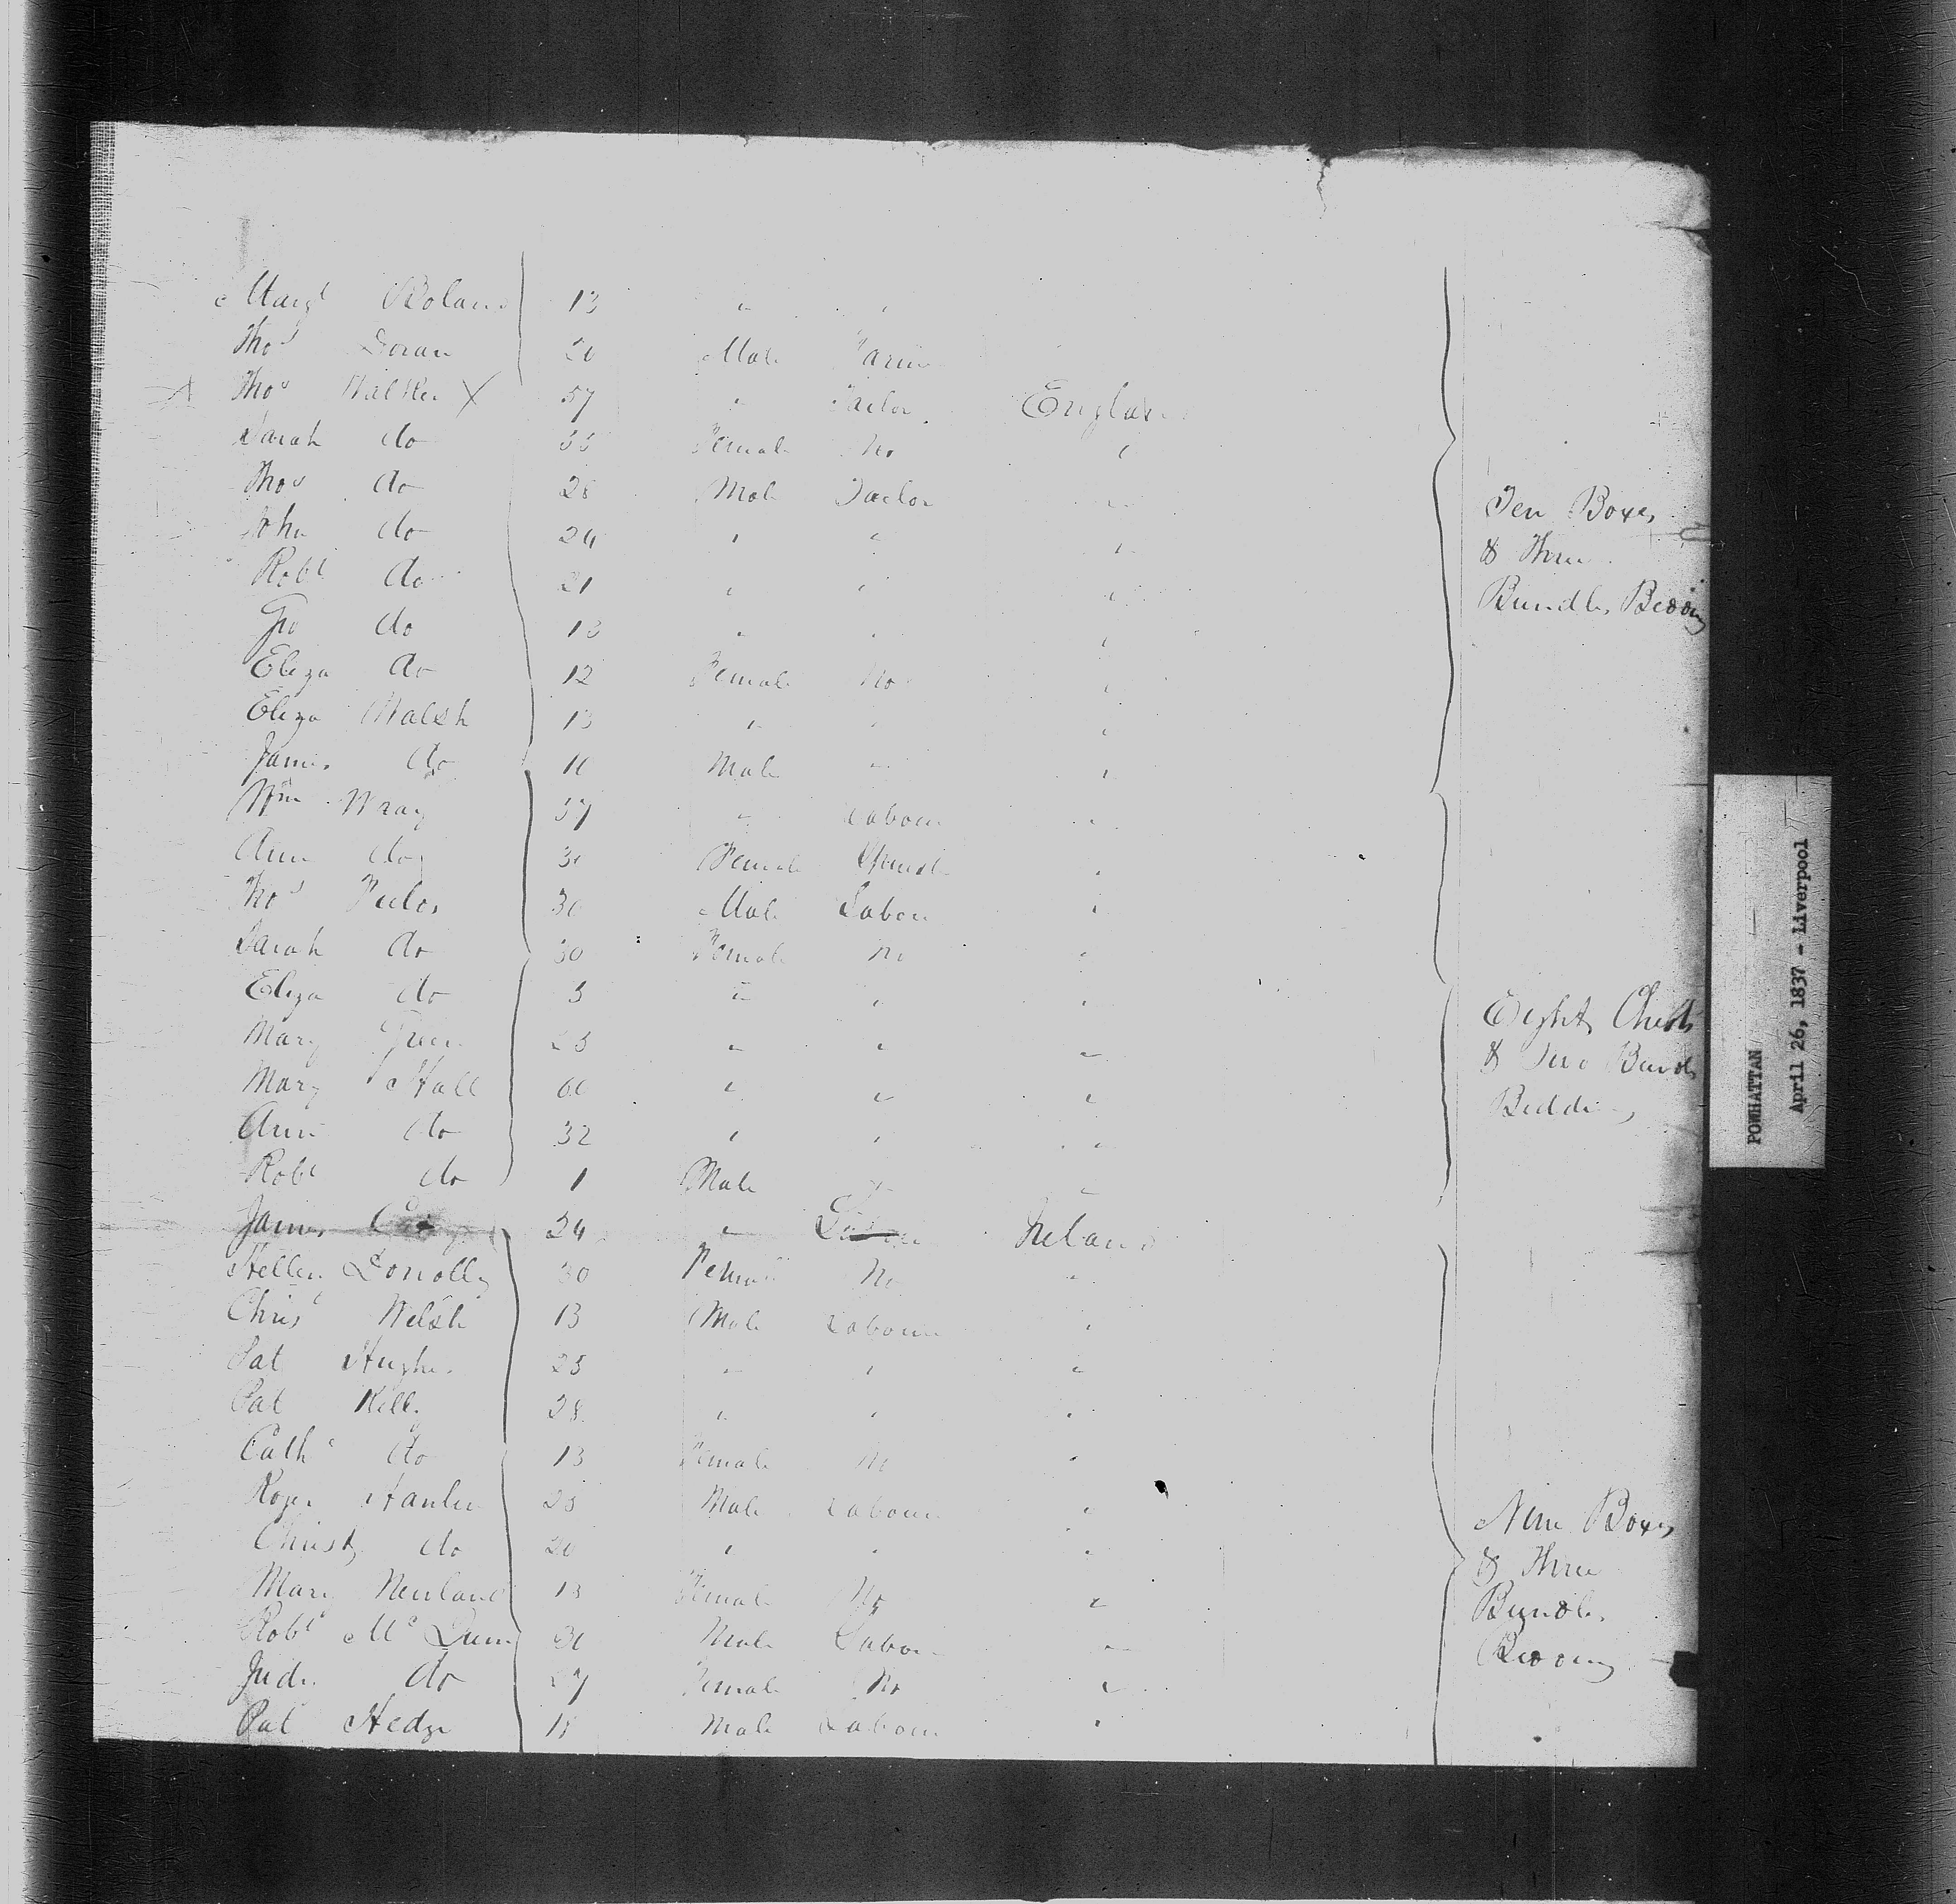 Margt Boland 13 " "
Thos Doran 20 Male Farm
Thos Walker X 57 " Tailor England
Sarah do 55 Female No "
Thos do 28 Male Tailor "
John do 24 " " "
Robt do 21 " " "
Geo do 13 " " "
Eliza do 12 Female No "
Eliza Walsh 13 " " "
James do 10 Male " "
Wm Wray 37 " Labour "
Ann do 30 Female "
Thos 30 Male Labour "
Sarah do 30 Female No "
Eliza do 3 " " "
Mary Green 23 " " "
Mary Hall 60 " " "
Ann do 32 " " "
Robt do 1 Male " "
James 24 " Ireland
Hellen Donolly 30 Female No "
Chrisr Welsh 13 Male Labour "
Pat Hughes 25 " " "
Pat Kelly 28 " " "
Cathe do 13 Female No "
Roger Hanlin 25 Male Labour "
Christy do 20 " " "
Mary Newland 18 Female No "
Robt Mc 30 Male Labour "
Judy do 27 Female No "
Pat Hedge 18 Male Labour "
Ten Boxes
& Three
Bundles Bedding
Eight Chests
& Two Bundls
Bedding
Nine Boxes
& Three
Bundles
Bedding
POWHATTAN
April 26, 1837 - Liverpool